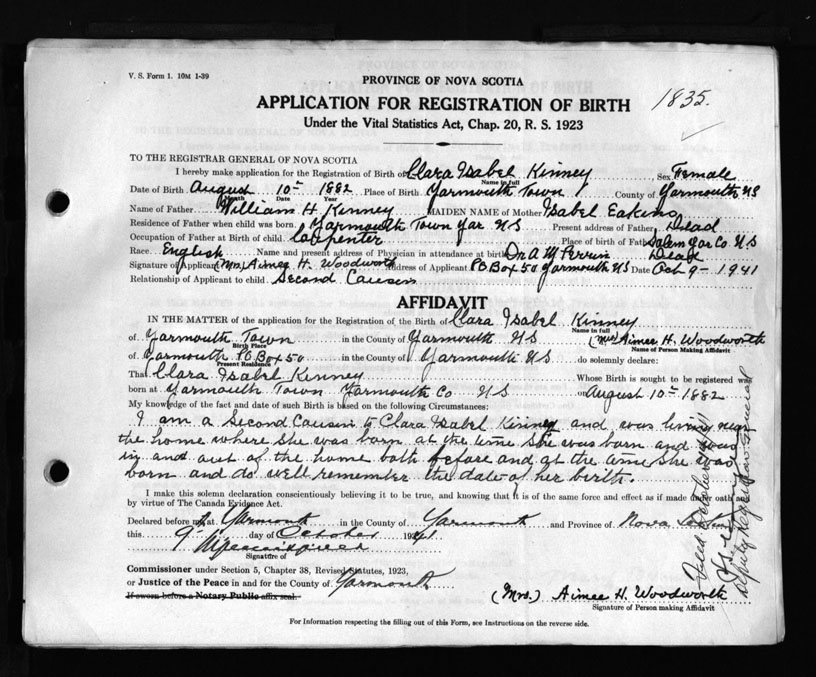 V. S. Form 1. 10M 1-39
PROVINCE OF NOVA SCOTIA
APPLICATION FOR REGISTRATION OF BIRTH
1835.
Under the Vital Statistics Act, Chap. 20, R. S. 1923
TO THE REGISTRAR GENERAL OF NOVA SCOTIA
I hereby make application for the Registration of Birth of Clara Isabel Kinney Sex Female
Name in full
Date of Birth August 10th 1882 Place of Birth Yarmouth Town County of Yarmouth NS
Month Date Year
Name of Father William H. Kinney MAIDEN NAME of Mother Isabel Eakins
Residence of Father when child was born Yarmouth Town Yar NS Present address of Father Dead
Occupation of Father at Birth of child. Carpenter Place of birth of Father Salem Yar Co NS
Race. English Name and present address of Physician in attendance at birth Dr A M Perrin Dead
Signature of Applicant (Mrs) Aimee H. Woodworth Address of Applicant PO Box 50 Yarmouth NS Date Oct 9 - 1941
Relationship of Applicant to child. Second Cousin
AFFIDAVIT
IN THE MATTER of the application for the Registration of the Birth of Clara Isabel Kinney
Name in full
of Yarmouth Town in the County of Yarmouth NS (Mrs) Aimee H. Woodworth
Birth Place Name of Person Making Affidavit
of Yarmouth PO Box 50 in the County of Yarmouth NS do solemnly declare:
Present Residence
That Clara Isabel Kinney Whose Birth is sought to be registered was
born at Yarmouth Town Yarmouth Co NS on August 10th 1882
My knowledge of the fact and date of such Birth is based on the following Circumstances:
I am a Second Cousin to Clara Isabel Kinney and was living near
the home where she was born at the time she was born and was
in and out of the home both before and at the time she was
born and do well remember the date of her birth.
I make this solemn declaration conscientiously believing it to be true, and knowing that it is of the same force and effect as if made under oath and
by virtue of The Canada Evidence Act.
Declared before me at Yarmouth in the County of Yarmouth and Province of Nova Scotia
this 9th day of October 1941
Signature of
Commissioner under Section 5, Chapter 38, Revised Statutes, 1923,
or Justice of the Peace in and for the County of Yarmouth
If sworn before a Notary Public affix seal.
(Mrs.) Aimee H. Woodworth
Signature of Person making Affidavit
For Information respecting the filling out of this Form, see Instructions on the reverse side.
Deputy Registrar General